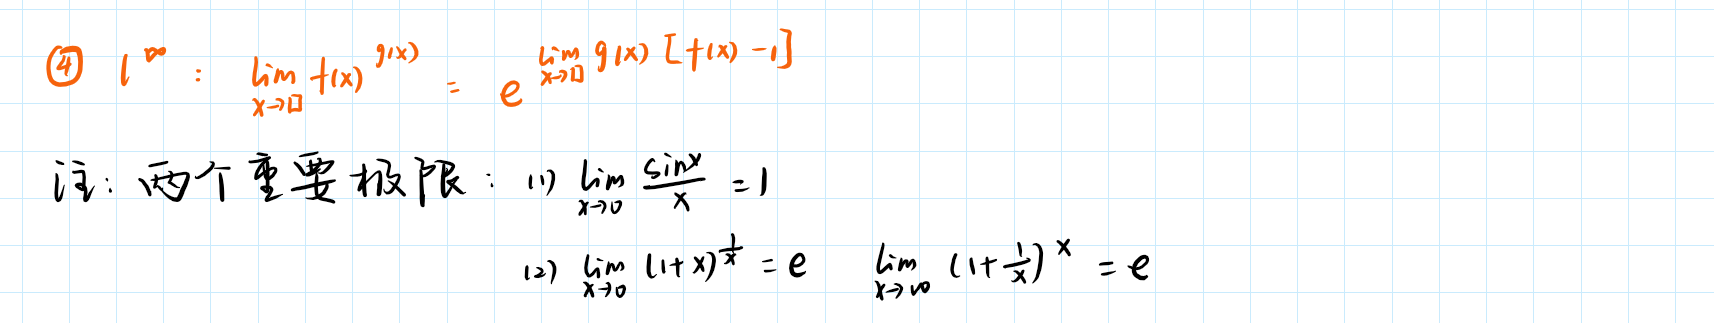 ④ 1^∞ : lim_{x→□} f(x)^{g(x)} = e^{lim_{x→□} g(x) [f(x) -1]}
注: 两个重要极限: (1) lim_{x→0} sinx/x = 1
(2) lim_{x→0} (1+x)^{1/x} = e lim_{x→∞} (1+1/x)^x = e